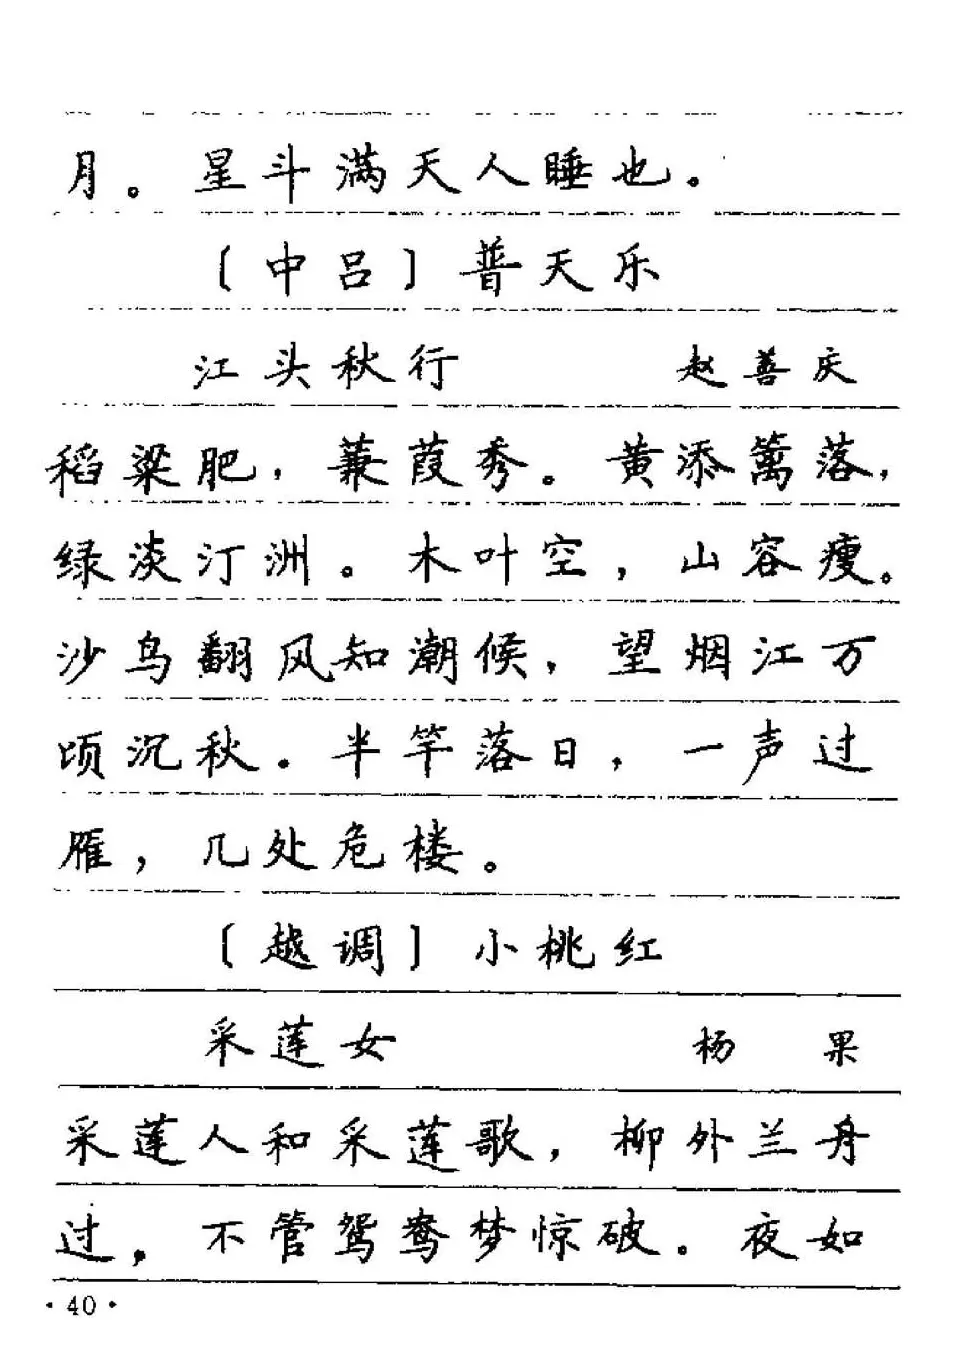 月。星斗满天人睡也。
〔中吕〕普天乐
江头秋行 赵善庆
稻粱肥，蒹葭秀。黄添篱落，
绿淡汀洲。木叶空，山容瘦。
沙鸟翻风知潮候，望烟江万
顷沉秋。半竿落日，一声过
雁，几处危楼。
〔越调〕小桃红
采莲女 杨果
采莲人和采莲歌，柳外兰舟
过，不管鸳鸯梦惊破。夜如
·40·